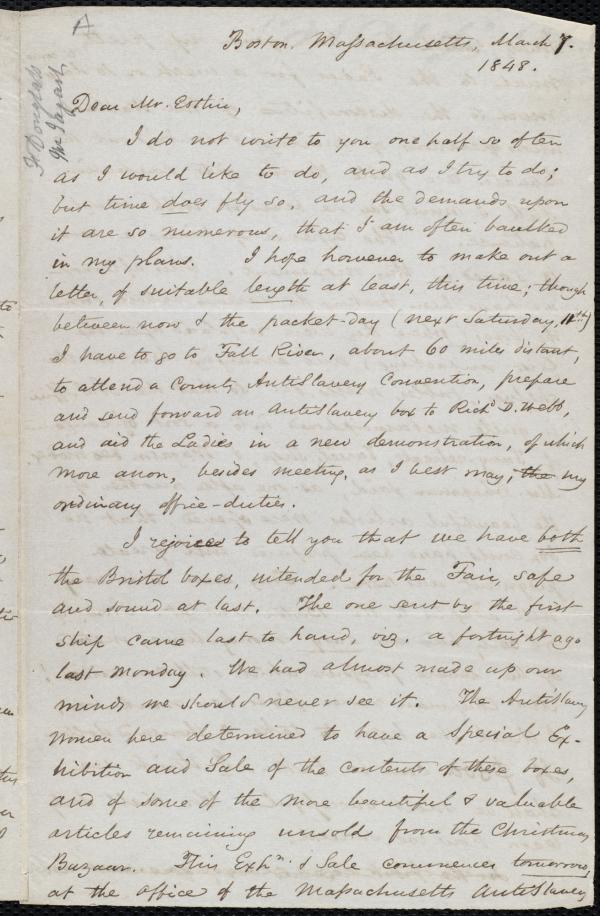 A
F Douglass
Boston. Massachusetts, March 7.
1848.
Dear Mr. Estlin,
I do not write to you one half so often
as I would like to do, and as I try to do;
but time does fly so, and the demands upon
it are so numerous, that I am often baulked
in my plans. I hope however to make out a
letter, of suitable length at least, this time; though
between now & the packet-day (next Saturday, 11th)
I have to go to Fall River, about 60 miles distant,
to attend a County AntiSlavery Convention, prepare
and send forward an AntiSlavery box to Richd D. Webb,
and aid the Ladies in a new demonstration, of which
more anon, besides meeting, as I best may, the my
ordinary office-duties.
I rejoice to tell you that we have both
the Bristol boxes, intended for the Fair, safe
and sound at last. The one sent by the first
ship came last to hand, viz. a fortnight ago
last Monday. We had almost made up our
minds we should never see it. The AntiSlavery
Women here determined to have a Special Ex-
hibition and Sale of the contents of these boxes,
and of some of the more beautiful & valuable
articles remaining unsold from the Christmas
Bazaar. This Exhn. & Sale commences tomorrow,
at the office of the Massachusetts AntiSlavery